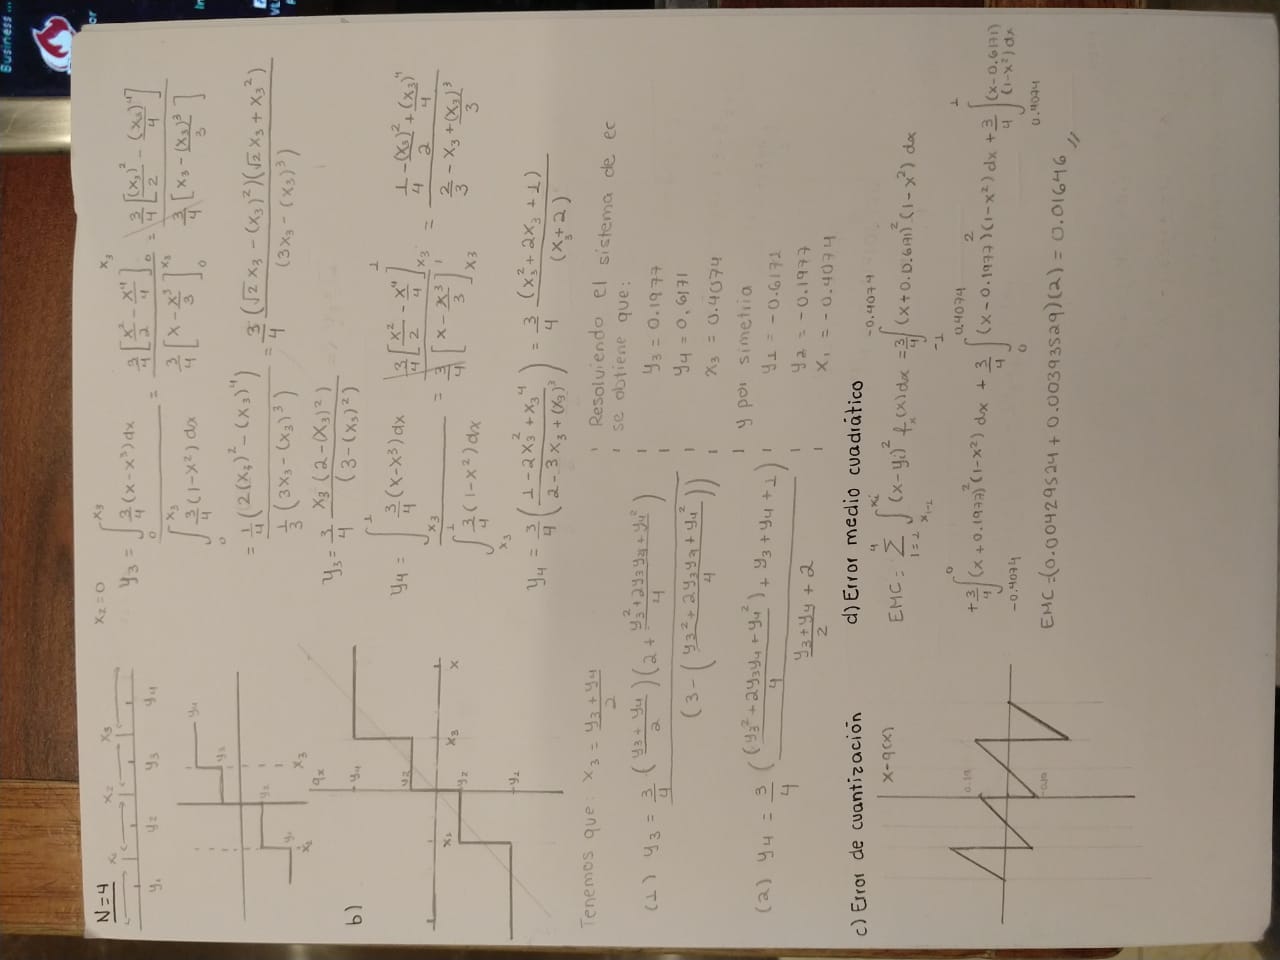 Business ...
or
In
VL
N=4
x₁ x₂ x₃
y₁ y₂ y₃ y₄
x₂=0
y₃ = ∫₀^x₃ 3/4 (x-x³)dx / ∫₀^x₃ 3/4 (1-x²) dx = 3/4 [x²/2 - x⁴/4]₀^x₃ / 3/4 [x - x³/3]₀^x₃ = 3/4 [(x₃)²/2 - (x₃)⁴/4] / 3/4 [x₃ - (x₃)³/3]
= 1/4 (2(x₃)² - (x₃)⁴) / 1/3 (3x₃ - (x₃)³) = 3/4 (√2 x₃ - (x₃)²)(√2 x₃ + x₃²) / (3x₃ - (x₃)³)
y₃ = 3/4 x₃ (2-(x₃)²) / (3-(x₃)²)
b)
qx
y₄
x₁ x₃ x
y₂
y₁
y₄ = ∫x₃^1 3/4 (x-x³)dx / ∫x₃^1 3/4 (1-x²)dx = 3/4 [x²/2 - x⁴/4]x₃^1 / 3/4 [x - x³/3]x₃^1 = 1/4 - (x₃)²/2 + (x₃)⁴/4 / 2/3 - x₃ + (x₃)³/3
y₄ = 3/4 (1 - 2x₃² + x₃⁴ / 2 - 3x₃ + (x₃)³) = 3/4 (x₃² + 2x₃ + 1) / (x₃ + 2)
Tenemos que: x₃ = y₃ + y₄ / 2
(1) y₃ = 3/4 (y₃ + y₄ / 2)(2 + y₃² + 2y₃y₄ + y₄² / 4) / (3 - (y₃² + 2y₃y₄ + y₄² / 4))
(2) y₄ = 3/4 ((y₃² + 2y₃y₄ + y₄² / 4) + y₃ + y₄ + 1) / y₃+y₄ / 2 + 2
Resolviendo el sistema de ec
se obtiene que:
y₃ = 0.1977
y₄ = 0.6171
x₃ = 0.4074
y por simetria
y₁ = -0.6171
y₂ = -0.1977
x₁ = -0.4074
c) Error de cuantización
x-q(x)
0.19
-0.19
d) Error medio cuadrático
EMC = Σ i=1 4 ∫x_{i-1}^{xi} (x-yi)² fx(x)dx = 3/4 ∫-1^-0.4074 (x+0.6171)² (1-x²) dx
+ 3/4 ∫-0.4074^0 (x+0.1977)² (1-x²) dx + 3/4 ∫0^0.4074 (x-0.1977)² (1-x²) dx + 3/4 ∫0.4074^1 (x-0.6171) (1-x²) dx
EMC = (0.00429524 + 0.00393529)(2) = 0.01646 //